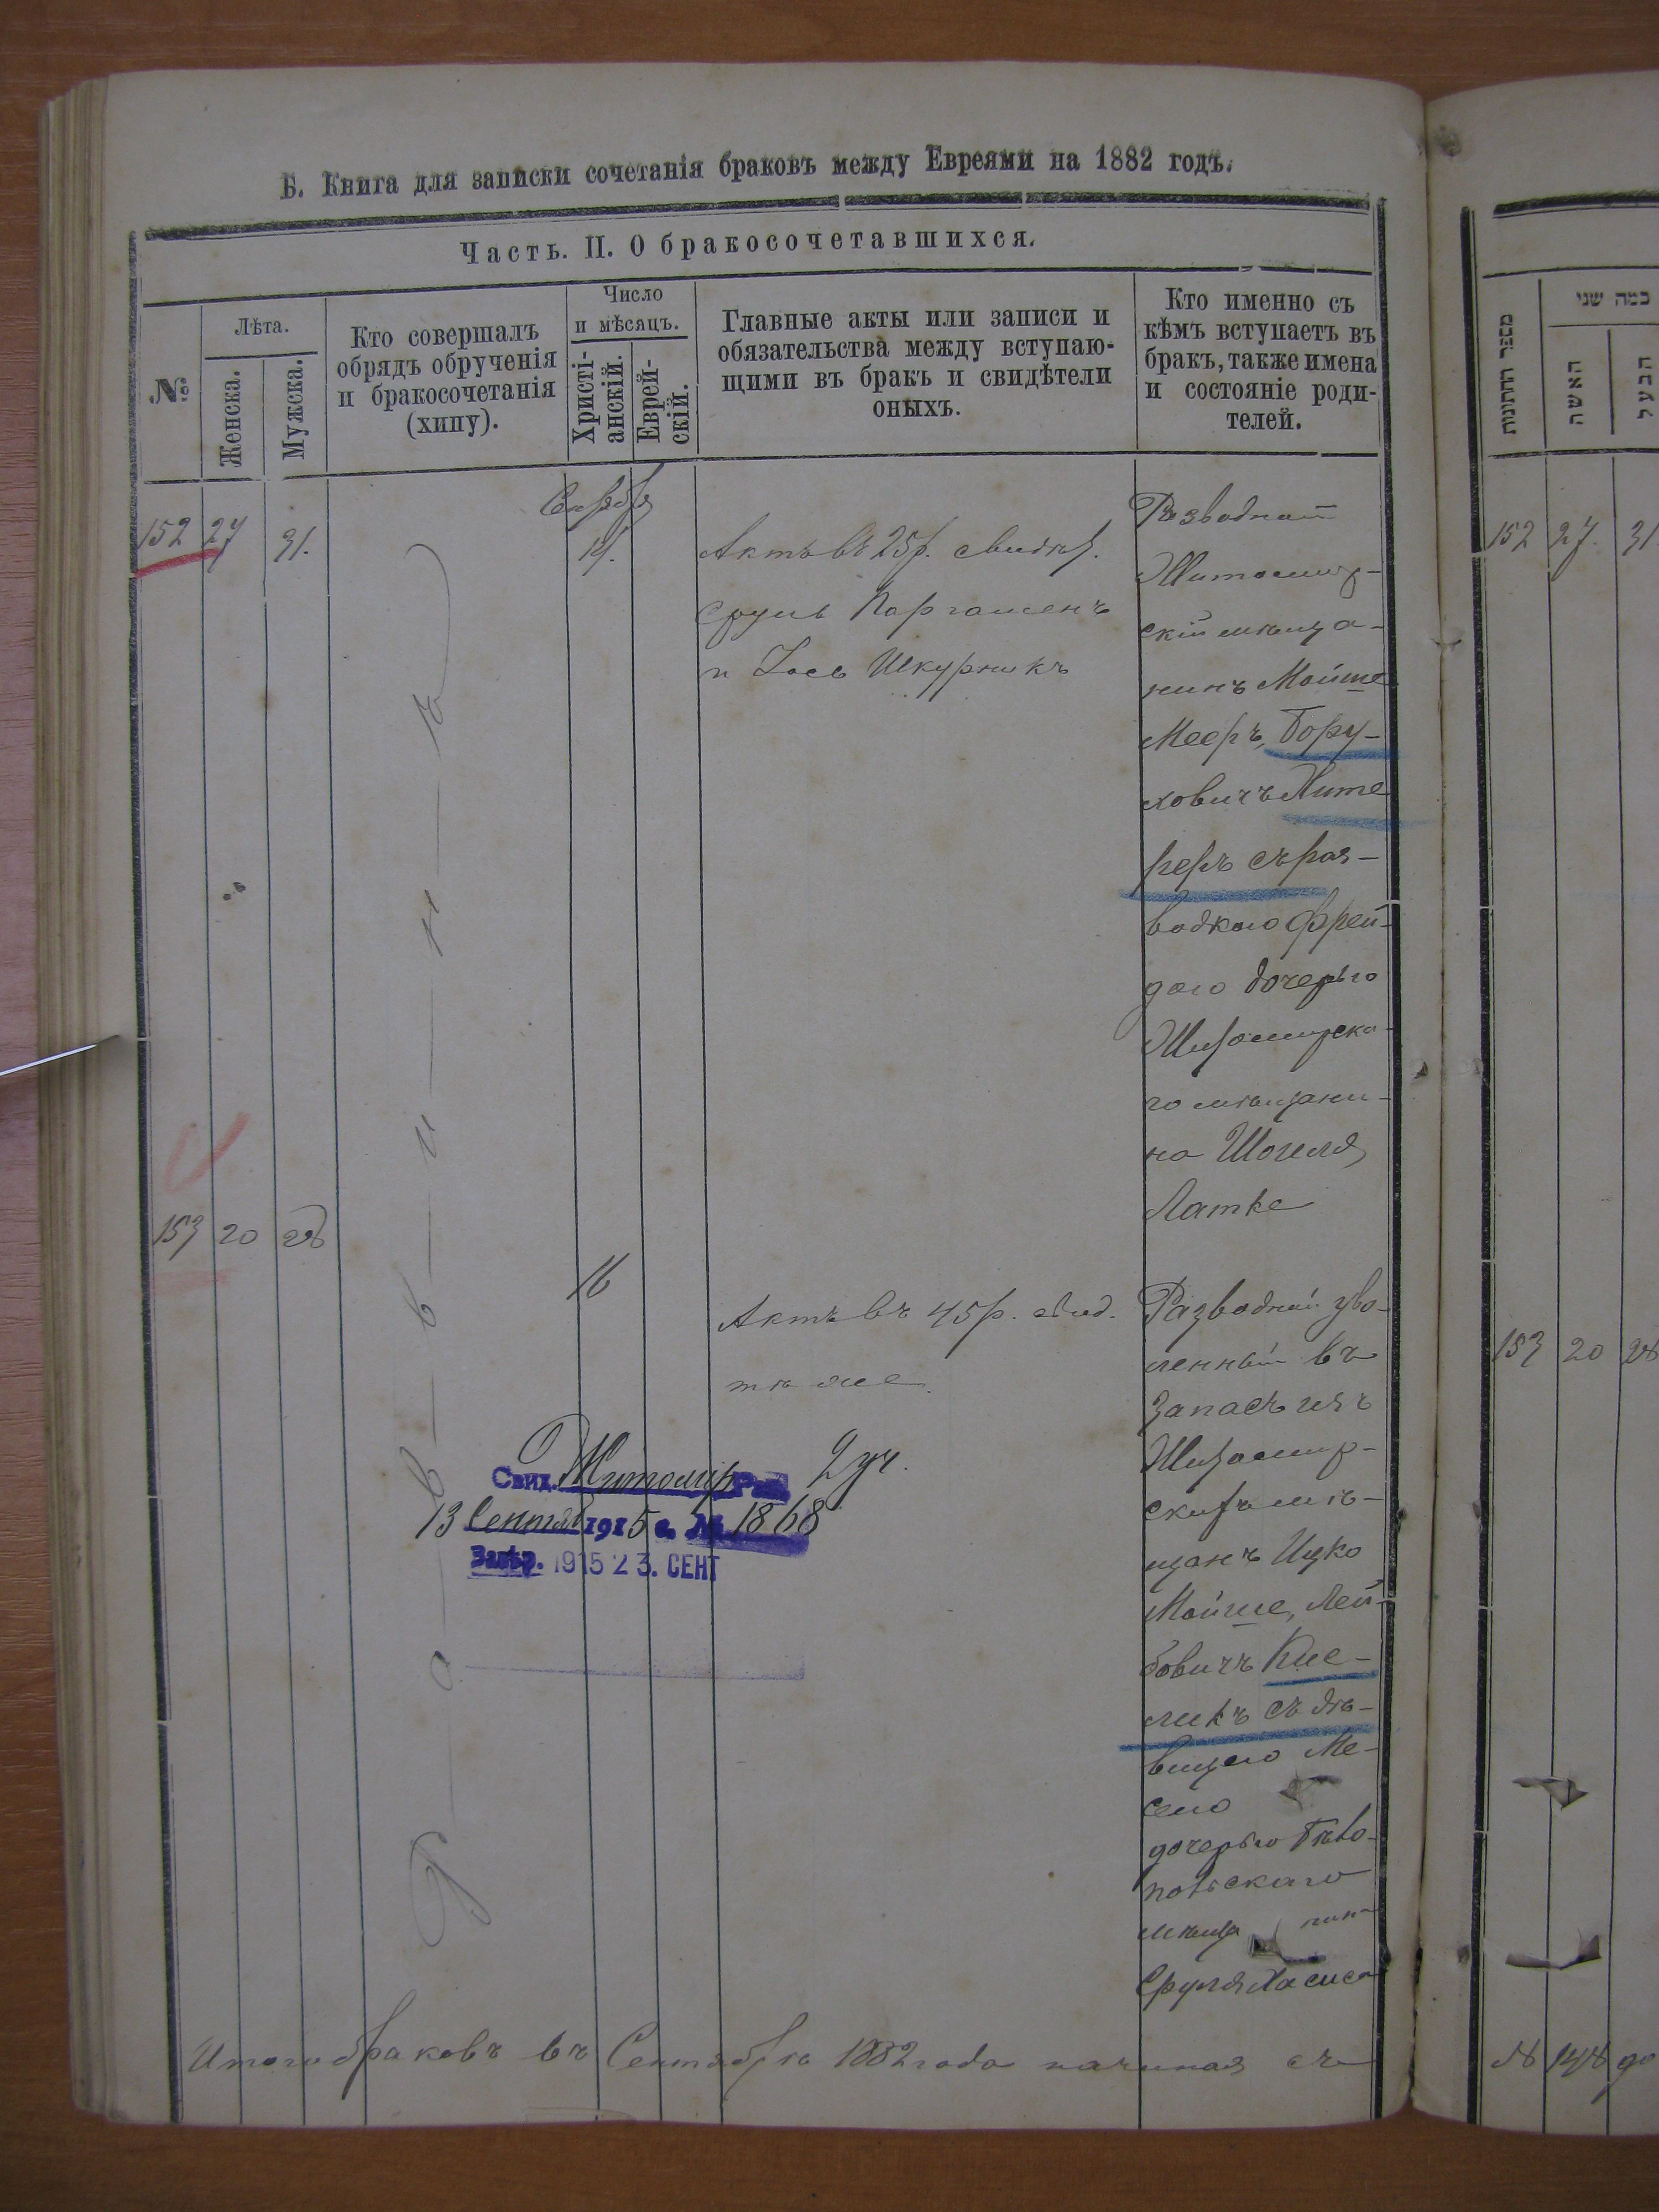 Б. Книга для записки сочетанія браковъ между Евреями на 1882 годъ.
Часть. II. О бракосочетавшихся.
№
Лѣта.
Женска.
Мужска.
Кто совершалъ
обрядъ обрученія
и бракосочетанія
(хипу).
Число
и мѣсяцъ.
Христі-
анскій.
Еврей-
скій.
Главные акты или записи и
обязательства между вступаю-
щими въ бракъ и свидѣтели
оныхъ.
Кто именно съ
кѣмъ вступаетъ въ
бракъ, также имена
и состояніе роди-
телей.
152 27 31.
14.
Актъ въ 25 р. свидѣт.
Сруль Паргаменъ
и Iось Шкурникъ
Разводный
Житомир-
скій мѣща-
нинъ Мойше
Мееръ Бору-
ховичъ
съ раз-
водкою Фрей-
дою дочерью
Житомирска-
го мѣщани-
на
Латке
Раввинъ
153 20 28
16
Актъ въ 45 р. свид.
тѣ же
Разводный уво-
ленный въ
запасъ изъ
Житомир-
скихъ мѣ-
щанъ Ицко
Мойше Лей-
бовичъ Кис-
ликъ съ дѣ-
вицею
дочерью
мѣща нин-
Сруля Хасиса
Свид. Житомир Рав 2 уч.
13 Сентяб 1915 г. № 1868
Завѣр. 1915 23. СЕНТ
Итого браковъ въ Сентябрѣ 1882 года начиная съ
מספר החתונות
כמה שני
האשה
הבעל
152 27. 31
153 20 28
№ 148 до